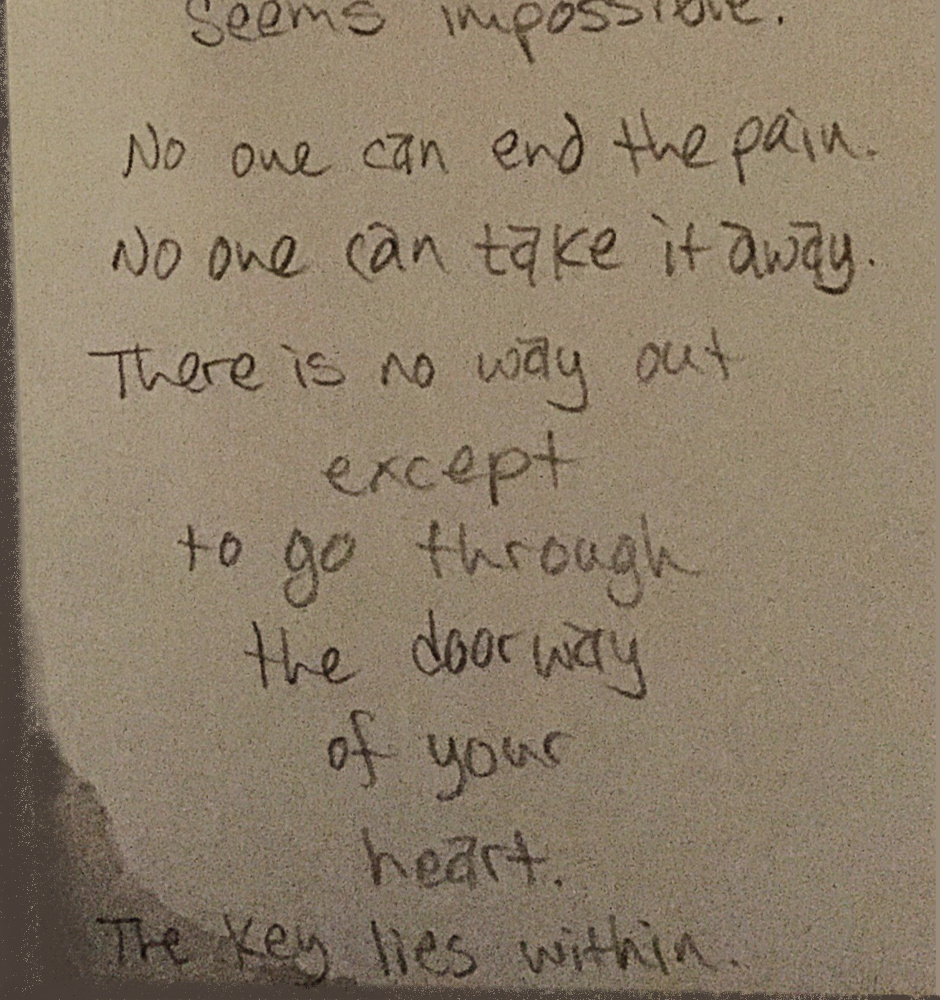 Seems impossible.
No one can end the pain.
No one can take it away.
There is no way out
except
to go through
the doorway
of your
heart.
The key lies within.